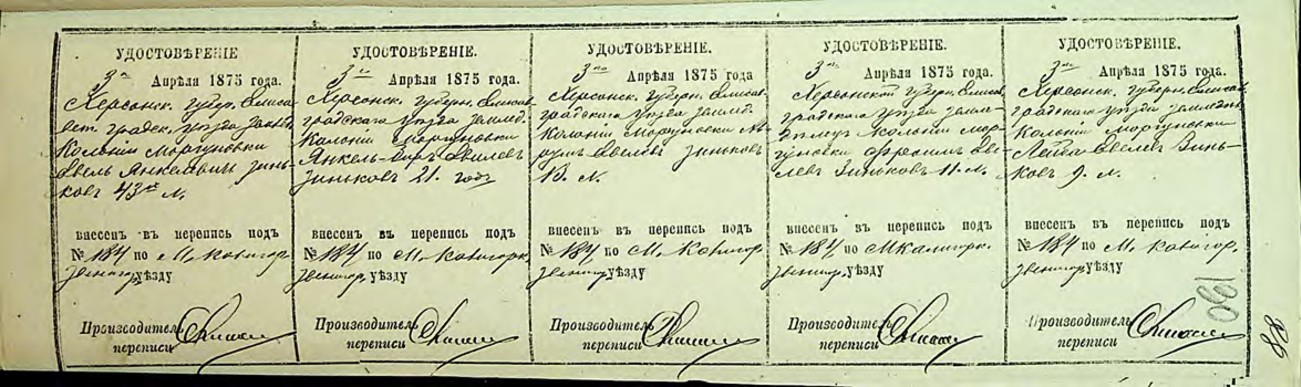 УДОСТОВѢРЕНІЕ
3го Апрѣля 1875 года.
Херсонск. губер. Елисав
ет. градск. уѣзда
Колоніи Моргуновки
Авель Янкелевич Зинь-
ковъ 43х л.
внесенъ въ перепись подъ
№ 184 по М. Калигор.
Звенигор. уѣзду
Производитель
переписи
УДОСТОВѢРЕНІЕ.
3го Апрѣля 1875 года.
Херсонск. губерн. Елисав
градскаго уѣзда землед.
Колоніи Моргуновки
Янкель Авелев
Зиньковъ 21. годъ
внесенъ въ перепись подъ
№ 184 по М. Калигорк.
Звенигор. уѣзду
Производитель
переписи
УДОСТОВѢРЕНІЕ.
3го Апрѣля 1875 года
Херсонск. губерн. Елисав
градскаго уѣзда землед.
Колоніи Моргуновки
Авелев Зиньковъ
13. л.
внесенъ въ перепись подъ
№ 184 по М. Калигор.
Звенигор. уѣзду
Производитель
переписи
УДОСТОВѢРЕНІЕ.
3го Апрѣля 1875 года.
Херсонской губерн. Елисав
градскаго уѣзда
колоніи Мор-
гуновки Фроим Аве-
левъ Зиньковъ 11. л.
внесенъ въ перепись подъ
№ 184 по М Калигорк.
Звенигор. уѣзду
Производитель
переписи
УДОСТОВѢРЕНІЕ.
3го Апрѣля 1875 года.
Херсонск. губерн. Елисав
градскаго уѣзда
Колоніи Моргуновки
Лейба Авелев Зинь-
ковъ 9. л.
внесенъ въ перепись подъ
№ 184 по М. Калигор.
Звенигор. уѣзду
Производитель
переписи
190
88